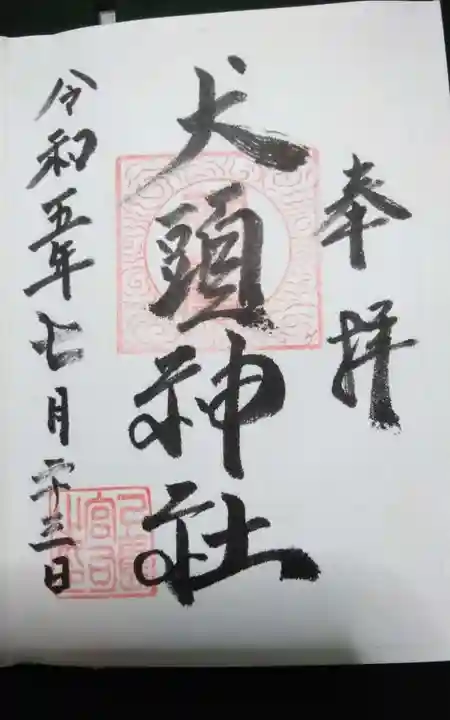 奉拝
犬頭神社
令和五年七月二十三日